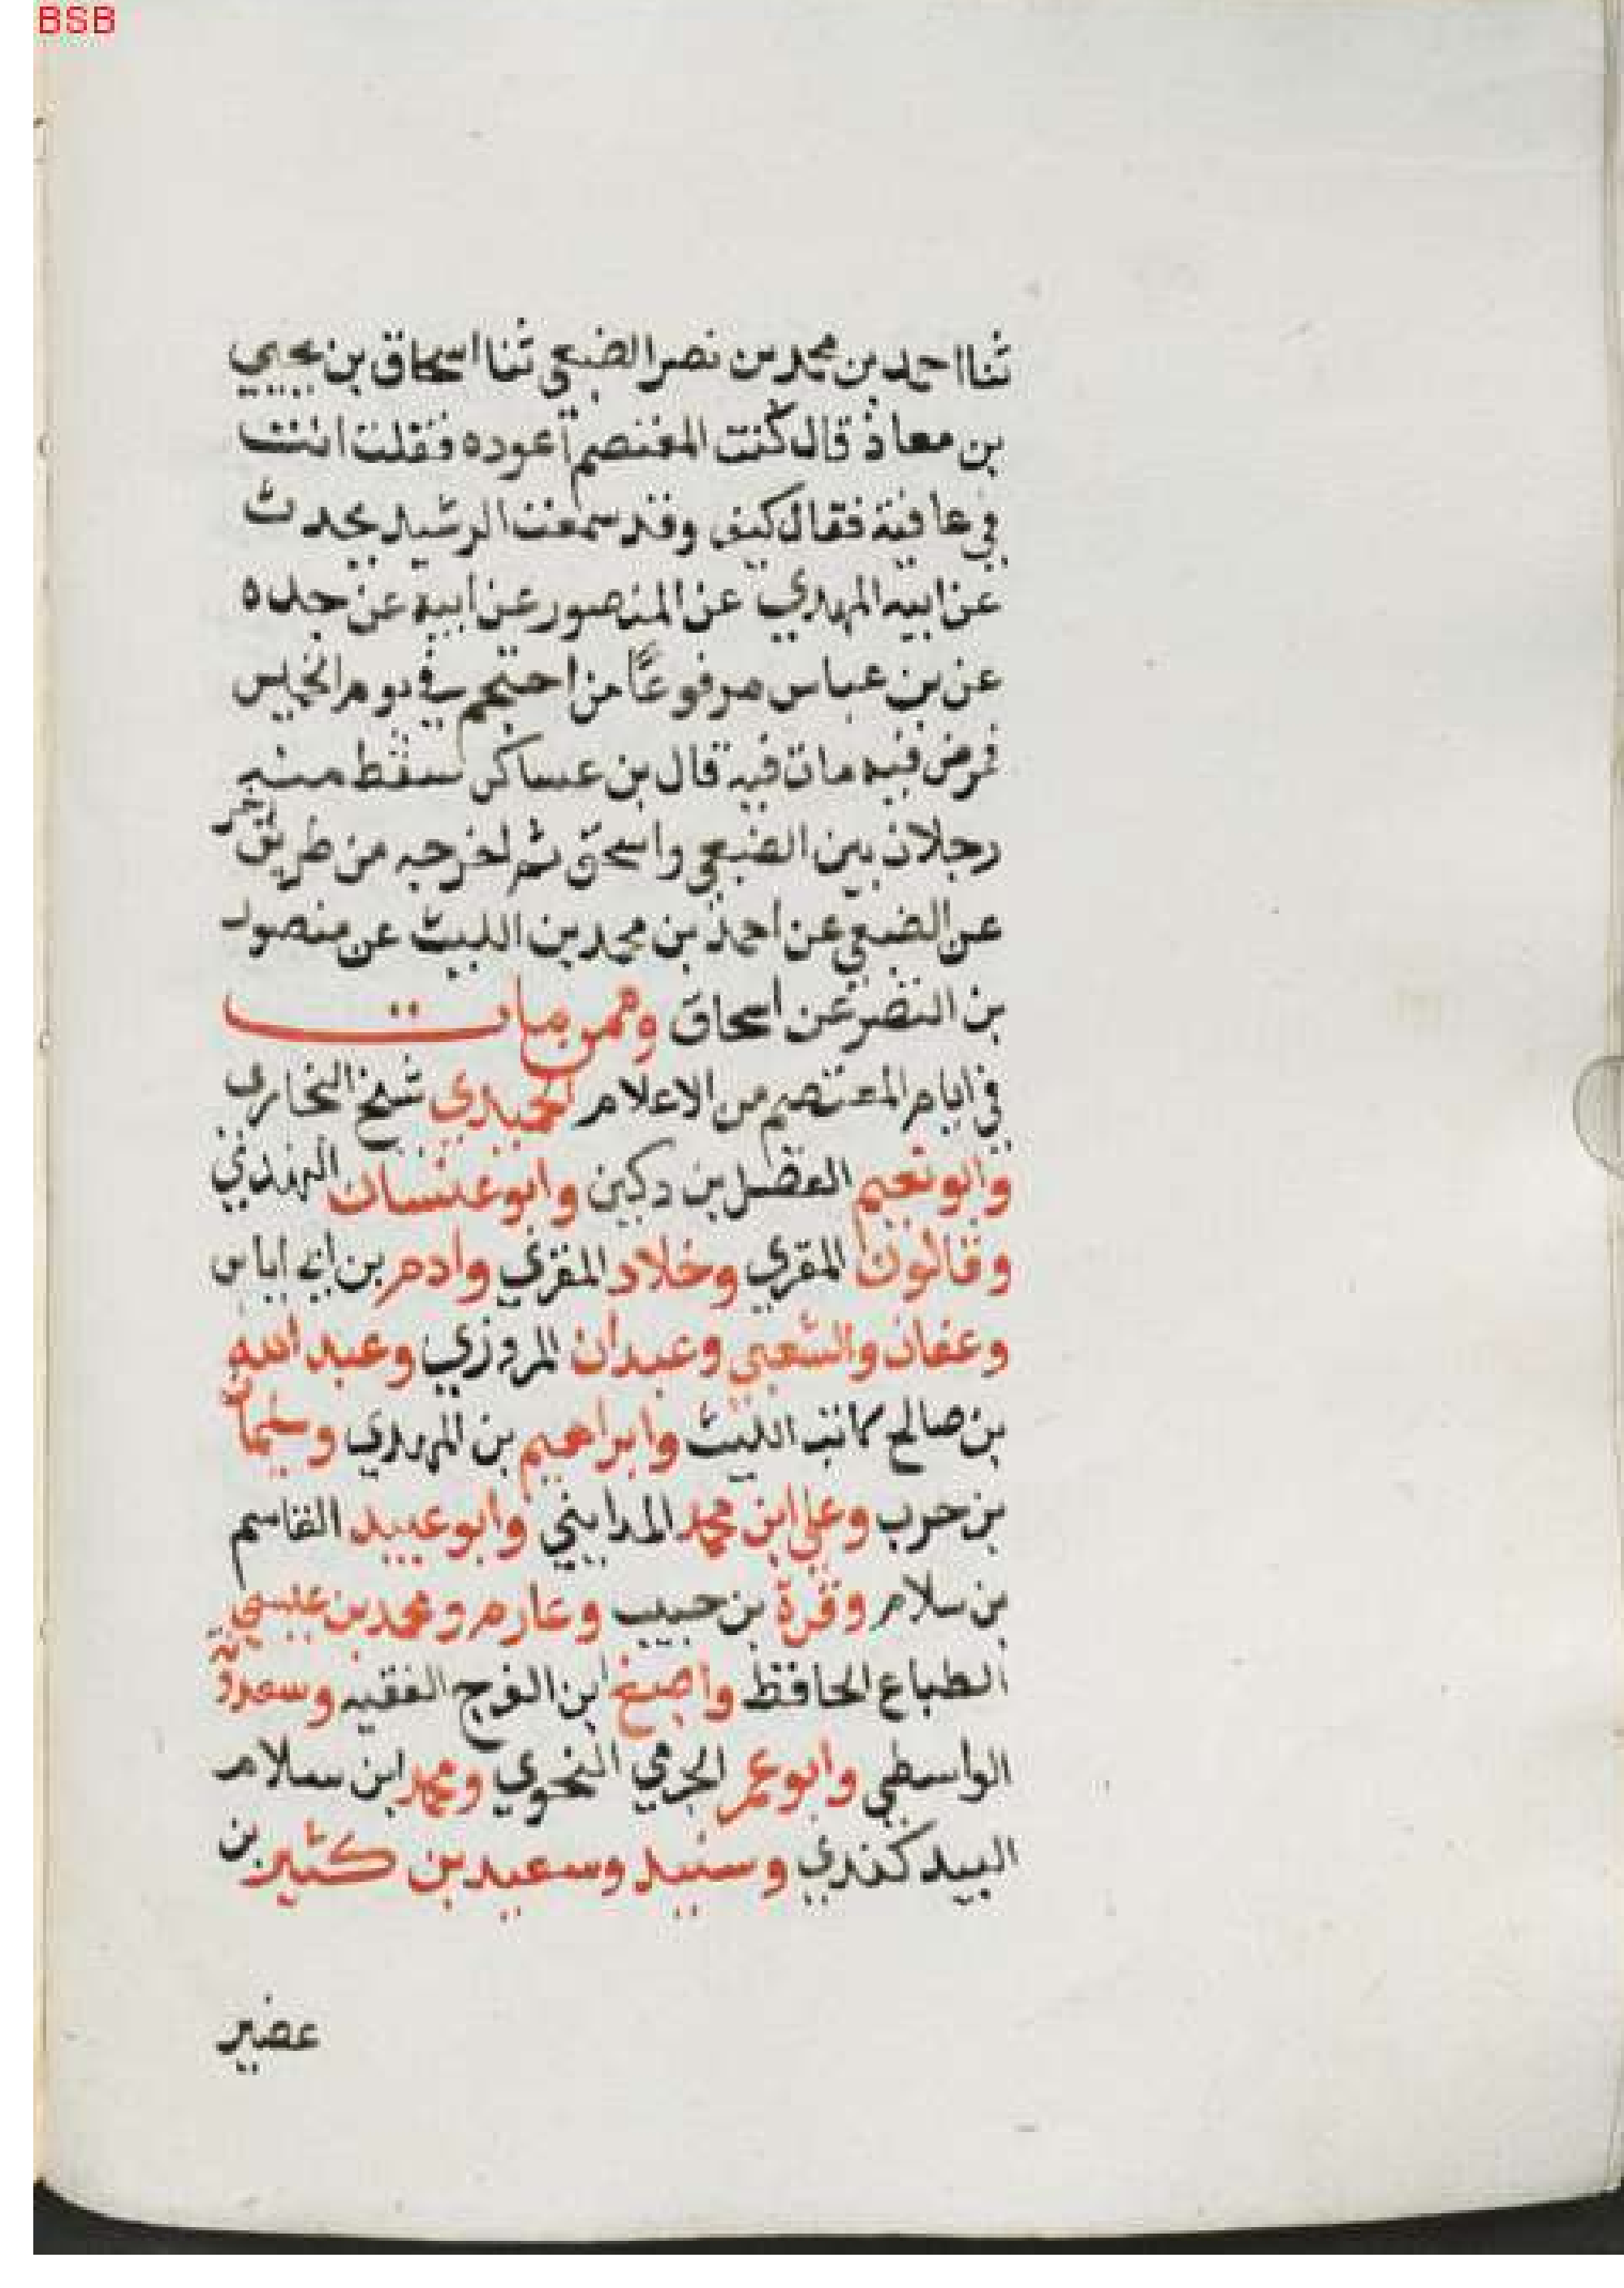 BSB
ثنا احمد بن محمد بن نصر الضبعي ثنا اسحاق بن يحيي
بن معاذ قال كنت المعتصم أعوده فقلت انت
في عافية فقال كيف وقد سمعت الرشيد يحدث
عن ابيه المهدي عن المنصور عن ابيه عن جده
عن بن عباس مرفوعًا من احتجم في يوم الخميس
فمرض فيه مات فيه قال بن عساكر سقط منه
رجلان بين الضبعي واسحق ثم اخرجه من طريق اخر
عن الضبعي عن احمد بن محمد بن الليث عن منصور
بن النضر عن اسحاق وممن مات
في ايام المعتصم من الاعلام الحميدي شيخ البخاري
وابو نعيم الفضل بن دكين وابو غسان النهدي
وقالون المقري وخلاد المقري وادم بن ابي اياس
وعفان والشعبي وعبدان المروزي وعبد الله
بن صالح كاتب الليث وابراهيم بن المهدي وسليمان
بن حرب وعلي ابن محمد المدايني وابو عبيد القاسم
بن سلام وقرة بن حبيب وعارم ومحمد بن عيسي
الطباع الحافظ واصبغ ابن الفرج الفقيه وسعدويه
الواسطي وابو عمر الجرمي النحوي ومحمد ابن سلام
البيدكندي وسنيد وسعيد بن كثير بن
عضير